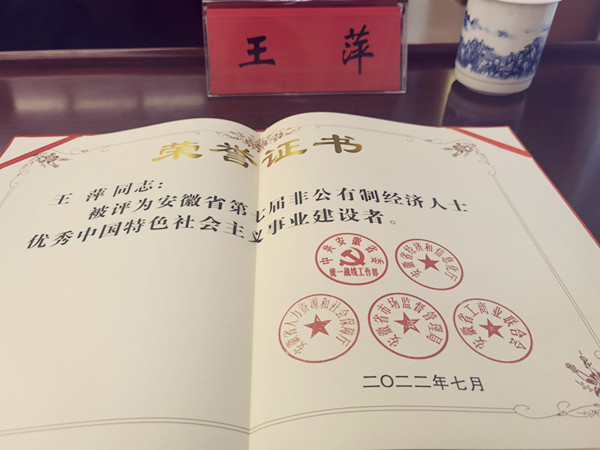 王 萍
荣誉证书
王 萍 同志：
被评为安徽省第七届非公有制经济人士
优秀中国特色社会主义事业建设者。
中共安徽省委
统一战线工作部
安徽省经济和信息化厅
安徽省人力资源和社会保障厅
安徽省市场监督管理局
安徽省工商业联合会
二〇二二年七月